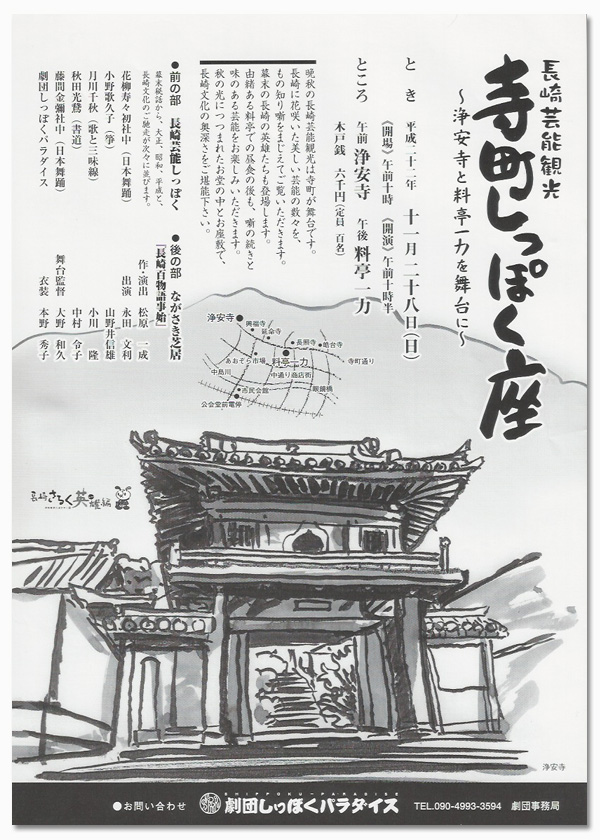 長崎芸能観光
寺町しっぽく座
〜浄安寺と料亭一力を舞台に〜
とき 平成二十二年 十一月二十八日(日)
《開場》午前十時 《開演》午前十時半
ところ 午前 浄安寺 午後 料亭一力
木戸銭 六千円(定員 百名)
晩秋の長崎芸能観光は寺町が舞台です。
長崎に花咲いた美しい芸能の数々を、
もの知り噺をまじえてご覧いただきます。
幕末の長崎の英雄たちも登場します。
由緒ある料亭での昼食の後も、噺の続きと
味のある芸能をお楽しみいただきます。
秋の光につつまれたお堂の中とお座敷で、
長崎文化の奥深さをご堪能下さい。
●前の部 長崎芸能しっぽく
幕末秘話から、大正、昭和、平成と、
長崎文化のご馳走が次々に並びます。
花柳寿々初社中(日本舞踊)
小野歌久子(箏)
月川千秋(歌と三味線)
秋田光鵞(書道)
藤間金彌社中(日本舞踊)
劇団しっぽくパラダイス
●後の部 ながさき芝居
「長崎百物語事始」
作・演出 松原 一成
出演 永田 文利
山野井信雄
小川 隆
中村 令子
舞台監督 大野 和久
衣装 本野 秀子
浄安寺
興福寺
延命寺
長照寺
皓台寺
あおぞら市場
料亭一力
寺町通り
中島川
中通り商店街
市民会館
眼鏡橋
公会堂前電停
長崎さるく英雄編
浄安寺
●お問い合わせ
SHIPPOKU-PARADISE
劇団しっぽくパラダイス
TEL.090-4993-3594 劇団事務局